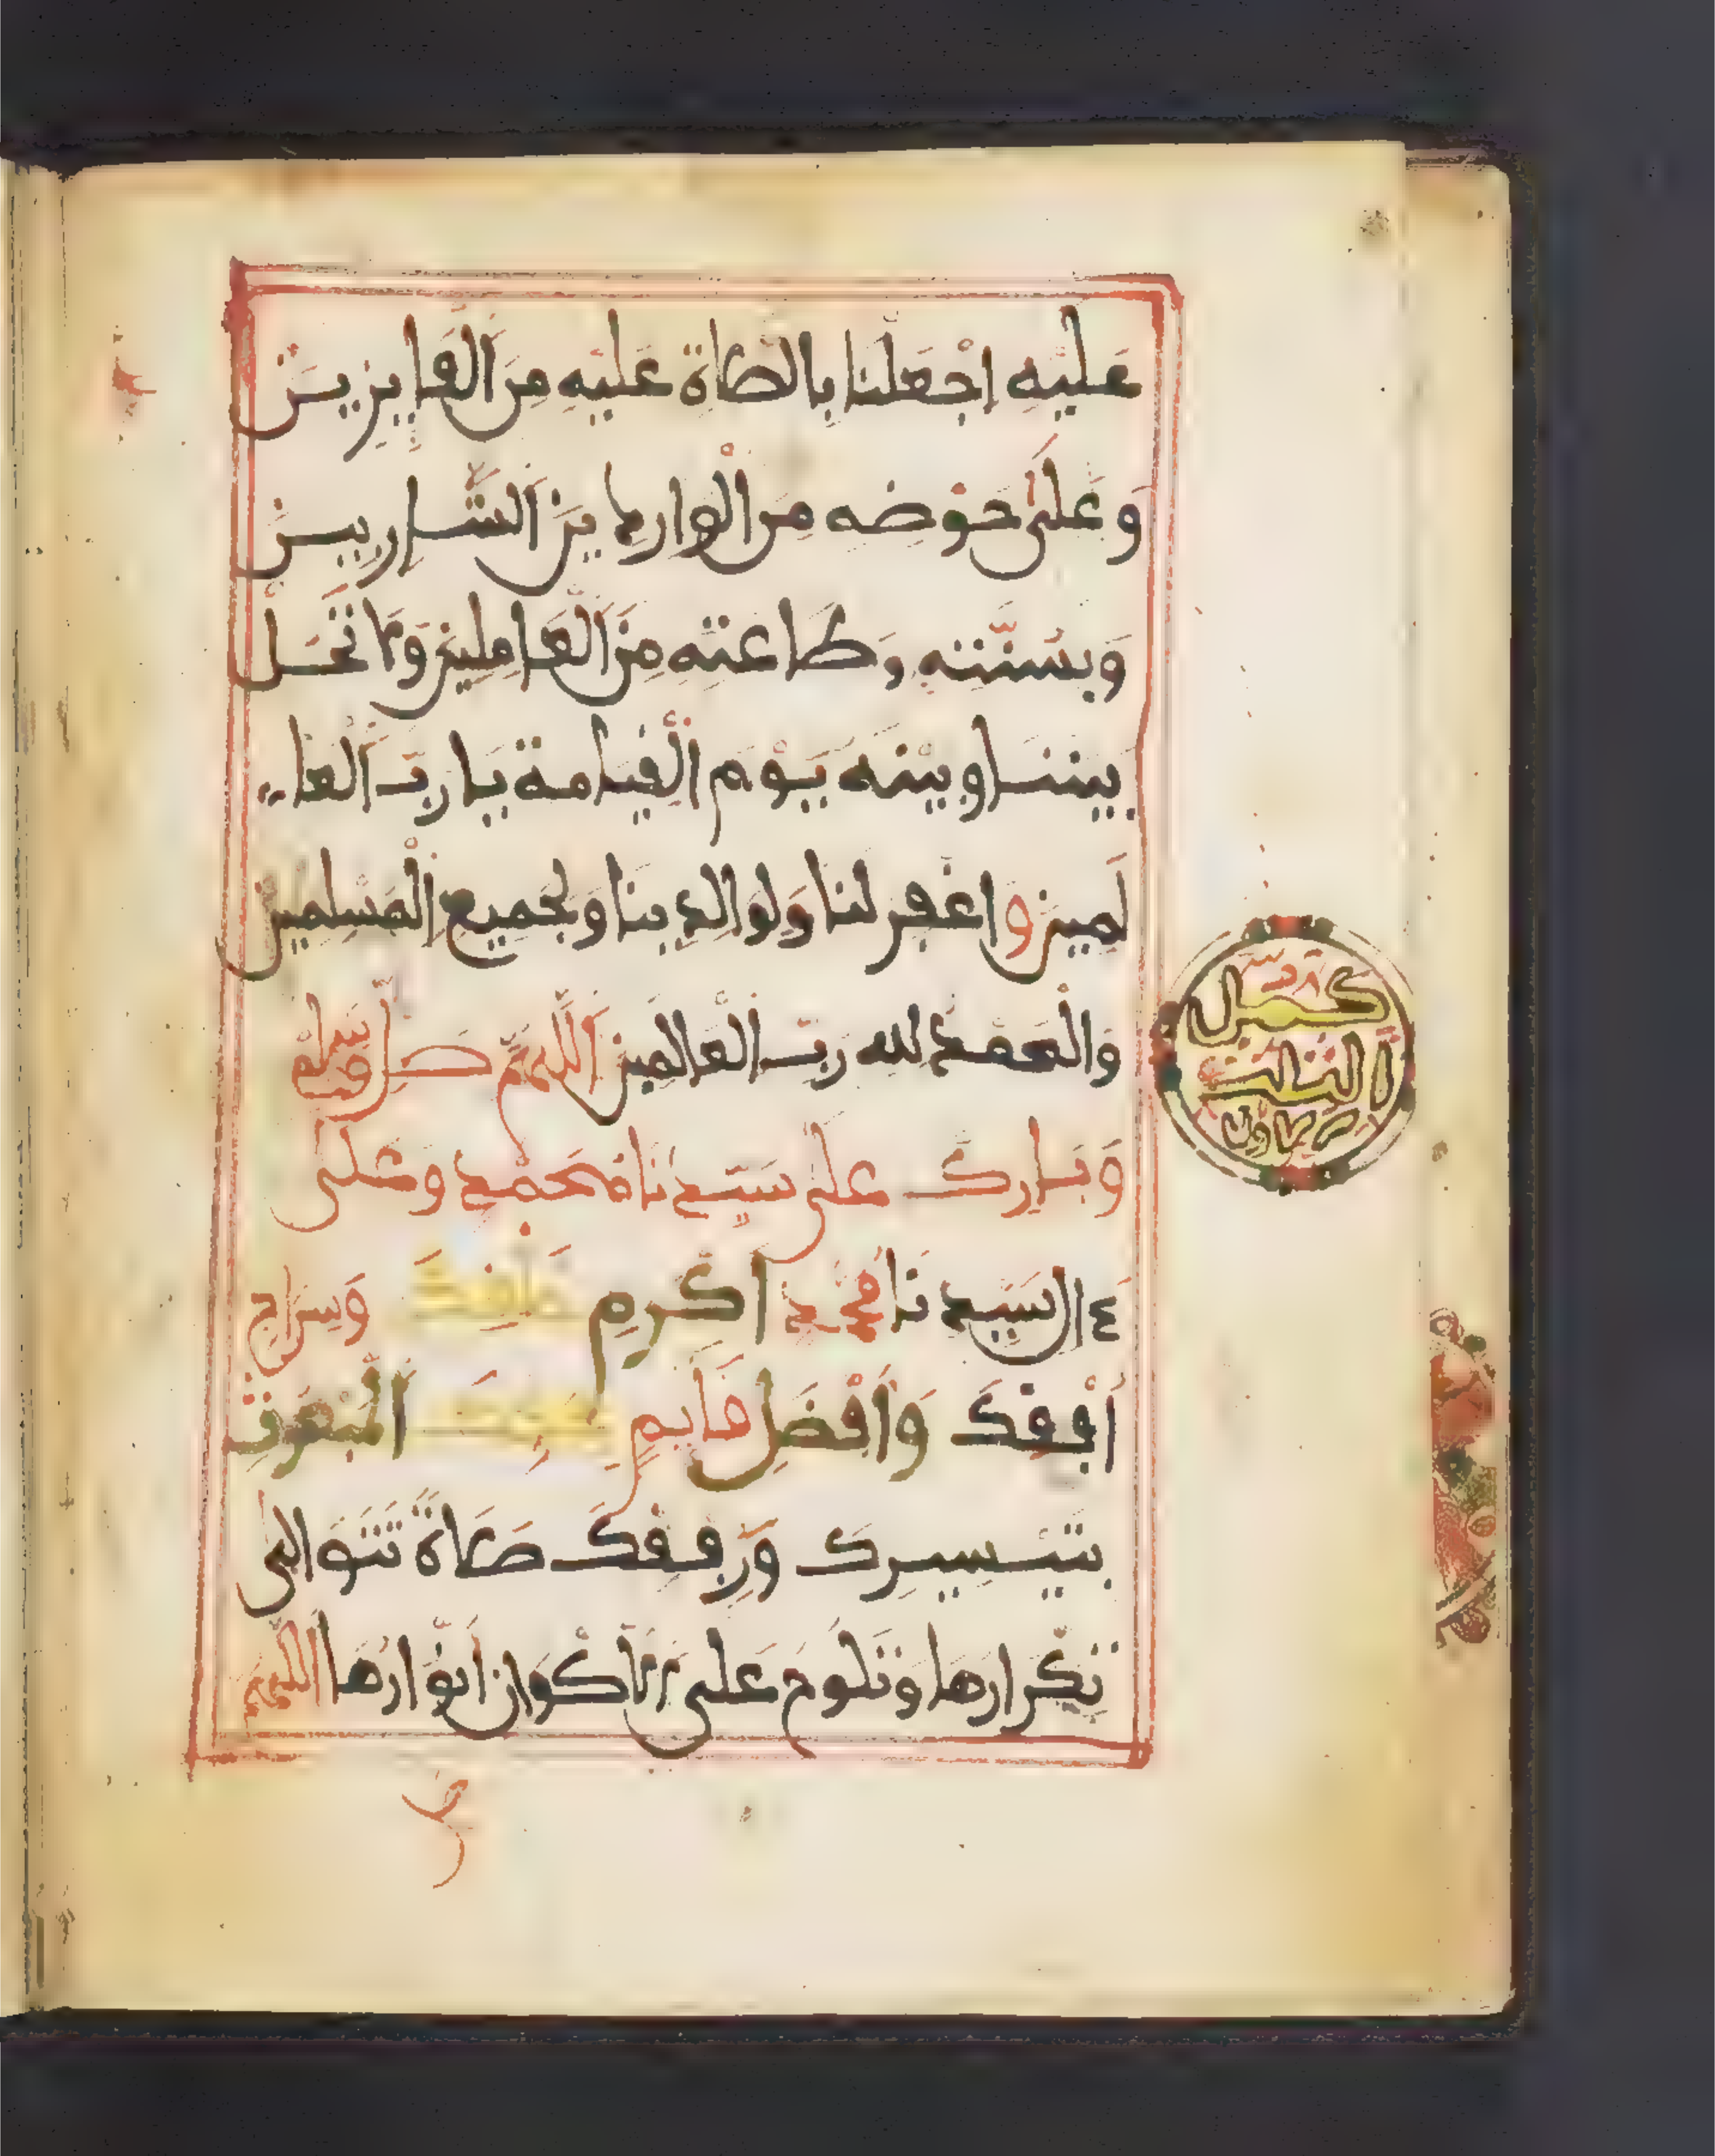 عَليْهِ اِجْعَلنا بِالصَّلاةِ عَليْهِ مِنَ الْفَايِزِينَ
وَعَلىٰ حَوْضِه مِنَ الْوارِدِينَ الشَّارِبِينَ
وَبِسُنَّتِهِ وَطَاعَتِهِ مِنَ الْعَامِلِينَ وَلَا تَحُلْ
بَيْننَا وبيْنَهُ يَوْمَ الْقِيَامَة يَا ربَّ الْعَا
لَمِينَ وَاغفِر لنَا وَلِوَالِدِينَا وَلِجَمِيعِ الْمُسْلِمِين
وَالْحَمْدُ لِله رَبِّ الْعَالَمِينَ اَللَّهُمَّ صَلِّ وَسَلِّمْ
وَبَارِكْ عَلى سَيِّدِنَا مُحَمَّدٍ وَعَلى
ءَالِ سَيِّدِنَا مُحَمَّدٍ اَكْرَمِ خَلْقِكَ وَسِرَاجِ
أُفُقِكَ وَأَفْضَلِ قَايِمٍ بِحَقِّكَ الْمَبْعُوثِ
بِتَيْسِيرِكَ وَرِفْقِكَ صَلَاةً تَتَوَالى
تَكْرَارُهَا وَتَلُوحُ عَلى الْأَكْوَانِ اَنْوَارُهَا اَللَّهُمَّ
صل
كمل
الثلث
الاول